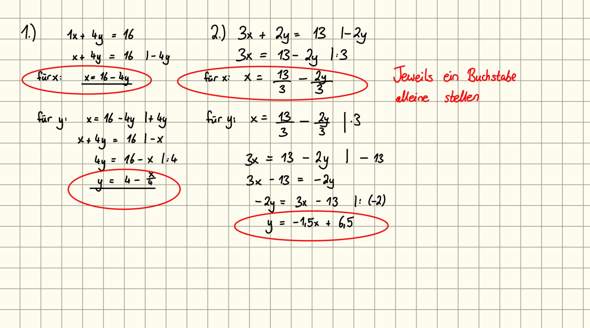 1.) 1x + 4y = 16
x + 4y = 16 | -4y
für x: x = 16 - 4y
für y: x = 16 - 4y | +4y
x + 4y = 16 | -x
4y = 16 - x | :4
y = 4 - x/4
2.) 3x + 2y = 13 | -2y
3x = 13 - 2y | :3
für x: x = 13/3 - 2y/3
für y: x = 13/3 - 2y/3 | ·3
3x = 13 - 2y | - 13
3x - 13 = -2y
-2y = 3x - 13 | : (-2)
y = -1,5x + 6,5
Jeweils ein Buchstabe
alleine stellen